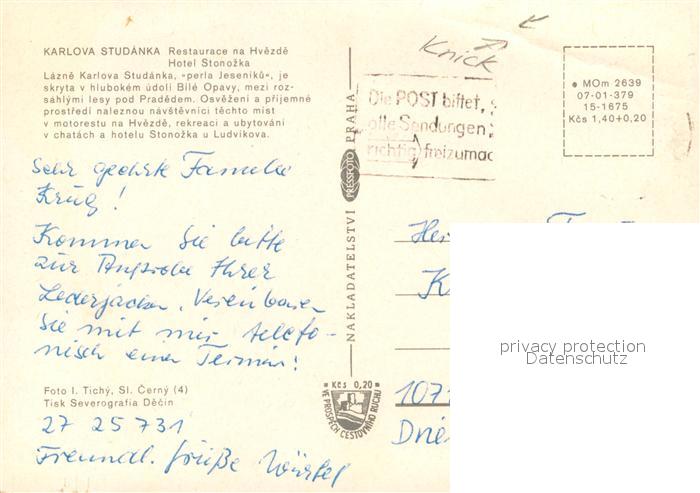 KARLOVA STUDÁNKA Restaurace na Hvězdě
Hotel Stonožka
Lázně Karlova Studánka, »perla Jeseníků«, je
skryta v hlubokém údolí Bílé Opavy, mezi roz-
sáhlými lesy pod Pradědem. Osvěžení a příjemné
prostředí naleznou návštěvníci těchto míst
v motorestu na Hvězdě, rekreaci a ubytování
v chatách a hotelu Stonožka u Ludvíkova.
Sehr geehrte Familie
Krug!
Kommen Sie bitte
zur Anprobe Ihrer
Lederjacken. Vereinbaren
Sie mit mir telefo-
nisch einen Termin!
Foto I. Tichý, Sl. Černý (4)
Tisk Severografia Děčín
27 25 731
Freundl. Grüße
NAKLADATELSTVÍ PRESSFOTO PRAHA
Kčs 0,20
VE PROSPĚCH CESTOVNÍHO RUCHU
Knick
Die POST bittet,
alle Sendungen
richtig freizumac
MOm 2639
07-01-379
15-1675
Kčs 1,40+0,20
privacy protection
Datenschutz